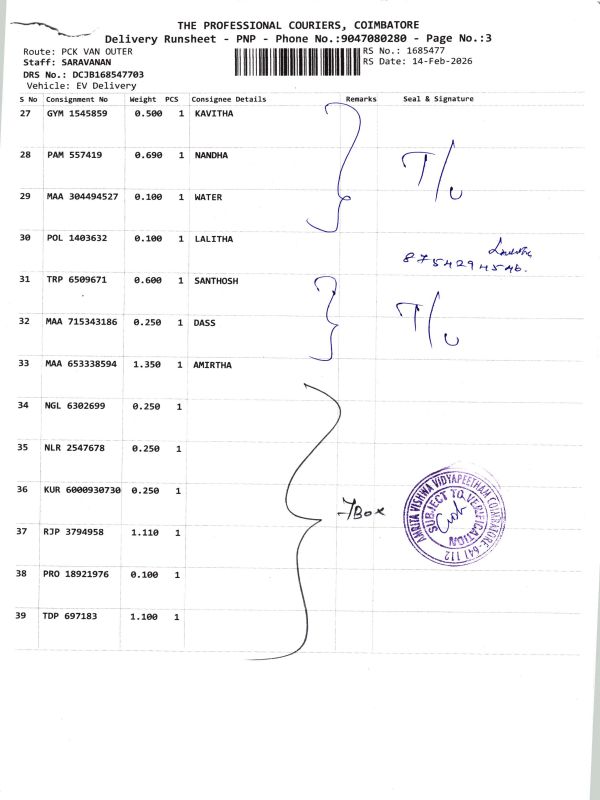 THE PROFESSIONAL COURIERS, COIMBATORE
Delivery Runsheet - PNP - Phone No.:9047080280 - Page No.:3
Route: PCK VAN OUTER
RS No.: 1685477
Staff: SARAVANAN
RS Date: 14-Feb-2026
DRS No.: DCJB168547703
Vehicle: EV Delivery
S No Consignment No Weight PCS Consignee Details Remarks Seal & Signature
27 GYM 1545859 0.500 1 KAVITHA
28 PAM 557419 0.690 1 NANDHA
T/U
29 MAA 304494527 0.100 1 WATER
30 POL 1403632 0.100 1 LALITHA
8754294546.
31 TRP 6509671 0.600 1 SANTHOSH
32 MAA 715343186 0.250 1 DASS
T/U
33 MAA 653338594 1.350 1 AMIRTHA
34 NGL 6302699 0.250 1
35 NLR 2547678 0.250 1
36 KUR 6000930730 0.250 1
7Box
AMRITA VISHWA VIDYAPEETHAM COIMBATORE-641 112
SUBJECT TO VERIFICATION
37 RJP 3794958 1.110 1
38 PRO 18921976 0.100 1
39 TDP 697183 1.100 1